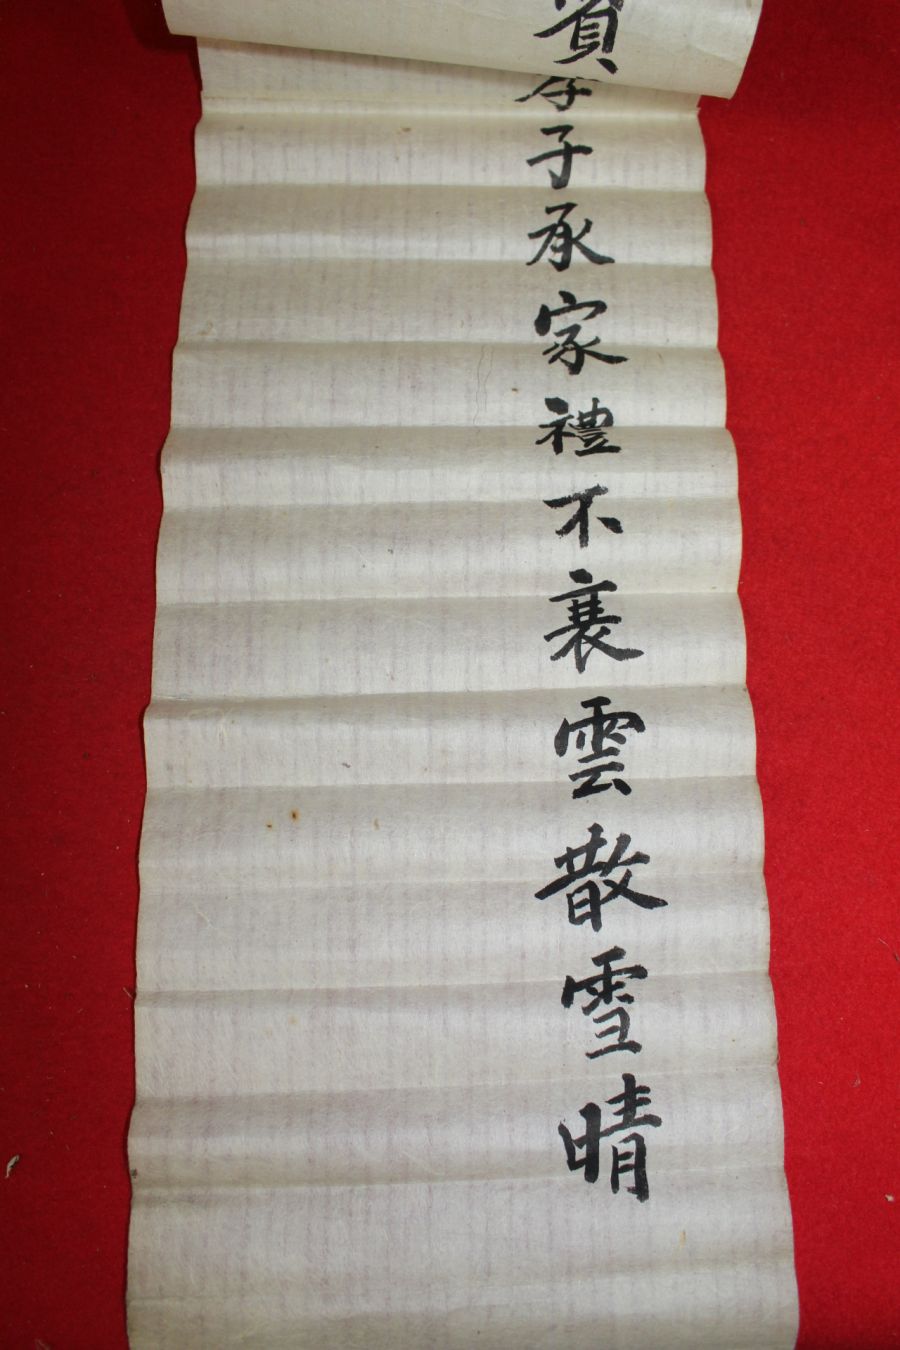 賓孝子承家禮不衰雲散雪晴